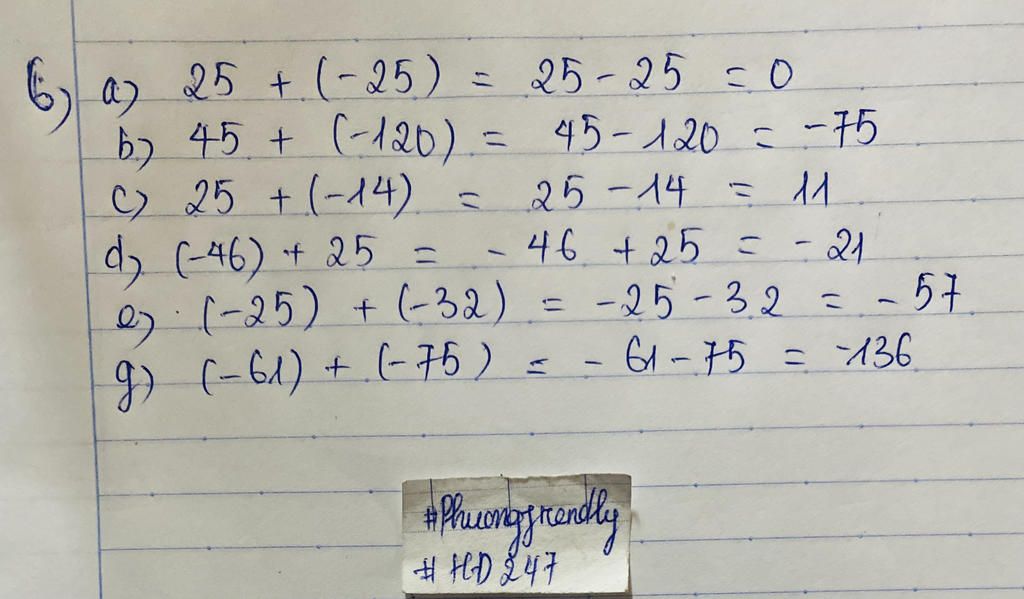 6) a) 25 + (-25) = 25 - 25 = 0
b) 45 + (-120) = 45 - 120 = -75
c) 25 + (-14) = 25 - 14 = 11
d) (-46) + 25 = - 46 + 25 = - 21
e) (-25) + (-32) = -25 - 32 = - 57
g) (-61) + (-75) = - 61 - 75 = -136
#Phuongfrendly
# HD 247